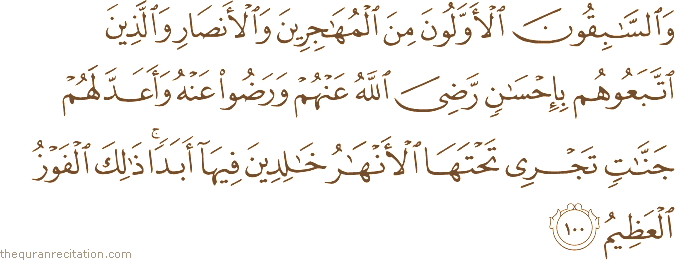 وَٱلسَّـٰبِقُونَ ٱلۡأَوَّلُونَ مِنَ ٱلۡمُهَـٰجِرِينَ وَٱلۡأَنصَارِ وَٱلَّذِينَ
ٱتَّبَعُوهُم بِإِحۡسَـٰنٍ رَّضِىَ ٱللَّهُ عَنۡہُمۡ وَرَضُواْ عَنۡهُ وَأَعَدَّ لَهُمۡ
جَنَّـٰتٍ تَجۡرِى تَحۡتَهَا ٱلۡأَنۡهَـٰرُ خَـٰلِدِينَ فِيہَآ أَبَدً۬اۚ ذَٲلِكَ ٱلۡفَوۡزُ
ٱلۡعَظِيمُ ١٠٠
thequranrecitation.com